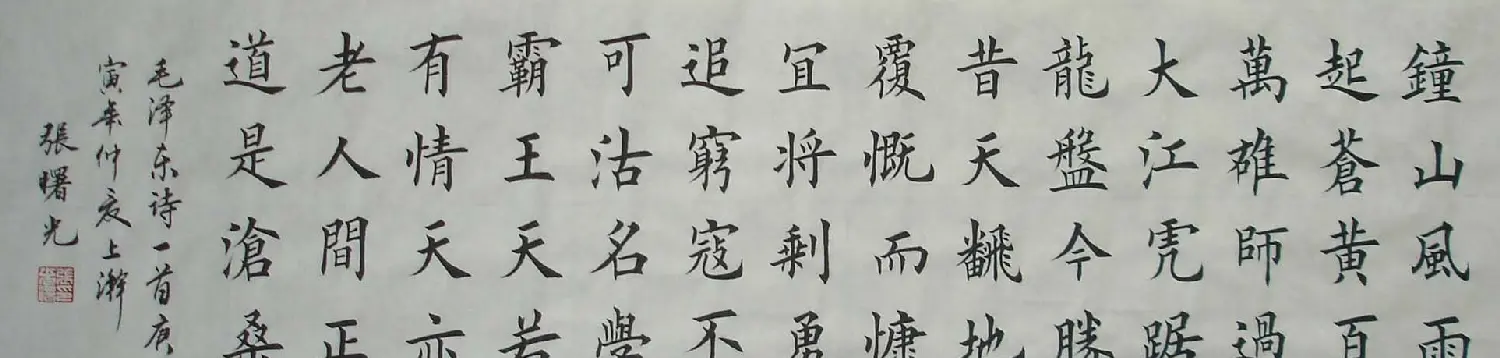 鐘山風雨
起蒼黃百
萬雄師過
大江虎踞
龍盤今勝
昔天飜地
覆慨而慷
冝将剩勇
追窮寇不
可沽名學
霸王天若
有情天亦
老人間正
道是滄桑
毛泽东诗一首庚
寅年仲夏上澣
張曙光